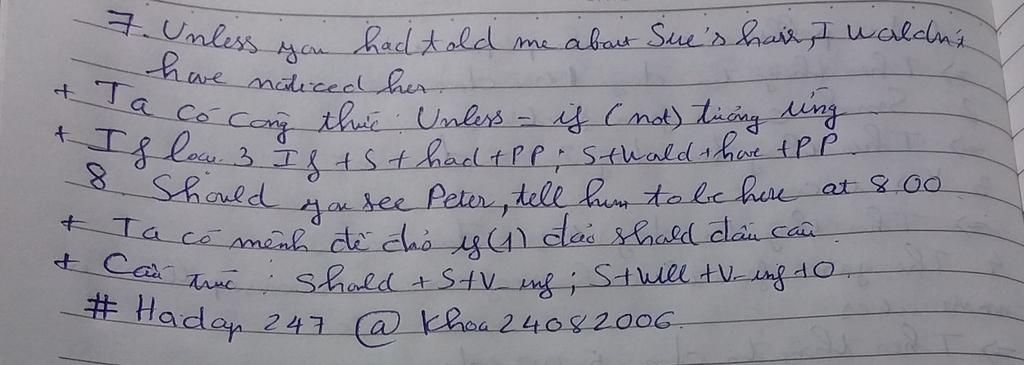 7. Unless you had told me about Sue's hair, I wouldn't
have noticed her.
+ Ta có công thức: Unless = if (not) tương ứng
+ If loại 3 If + S + had + PP; S + would + have + PP
8. Should you see Peter, tell him to be here at 8.00
+ Ta có mệnh đề đảo if(1) đảo should đầu câu
+ Cấu trúc: Should + S + V_ing; S + will + V_ing + O.
# Hadap 247 @ Khoa24082006.